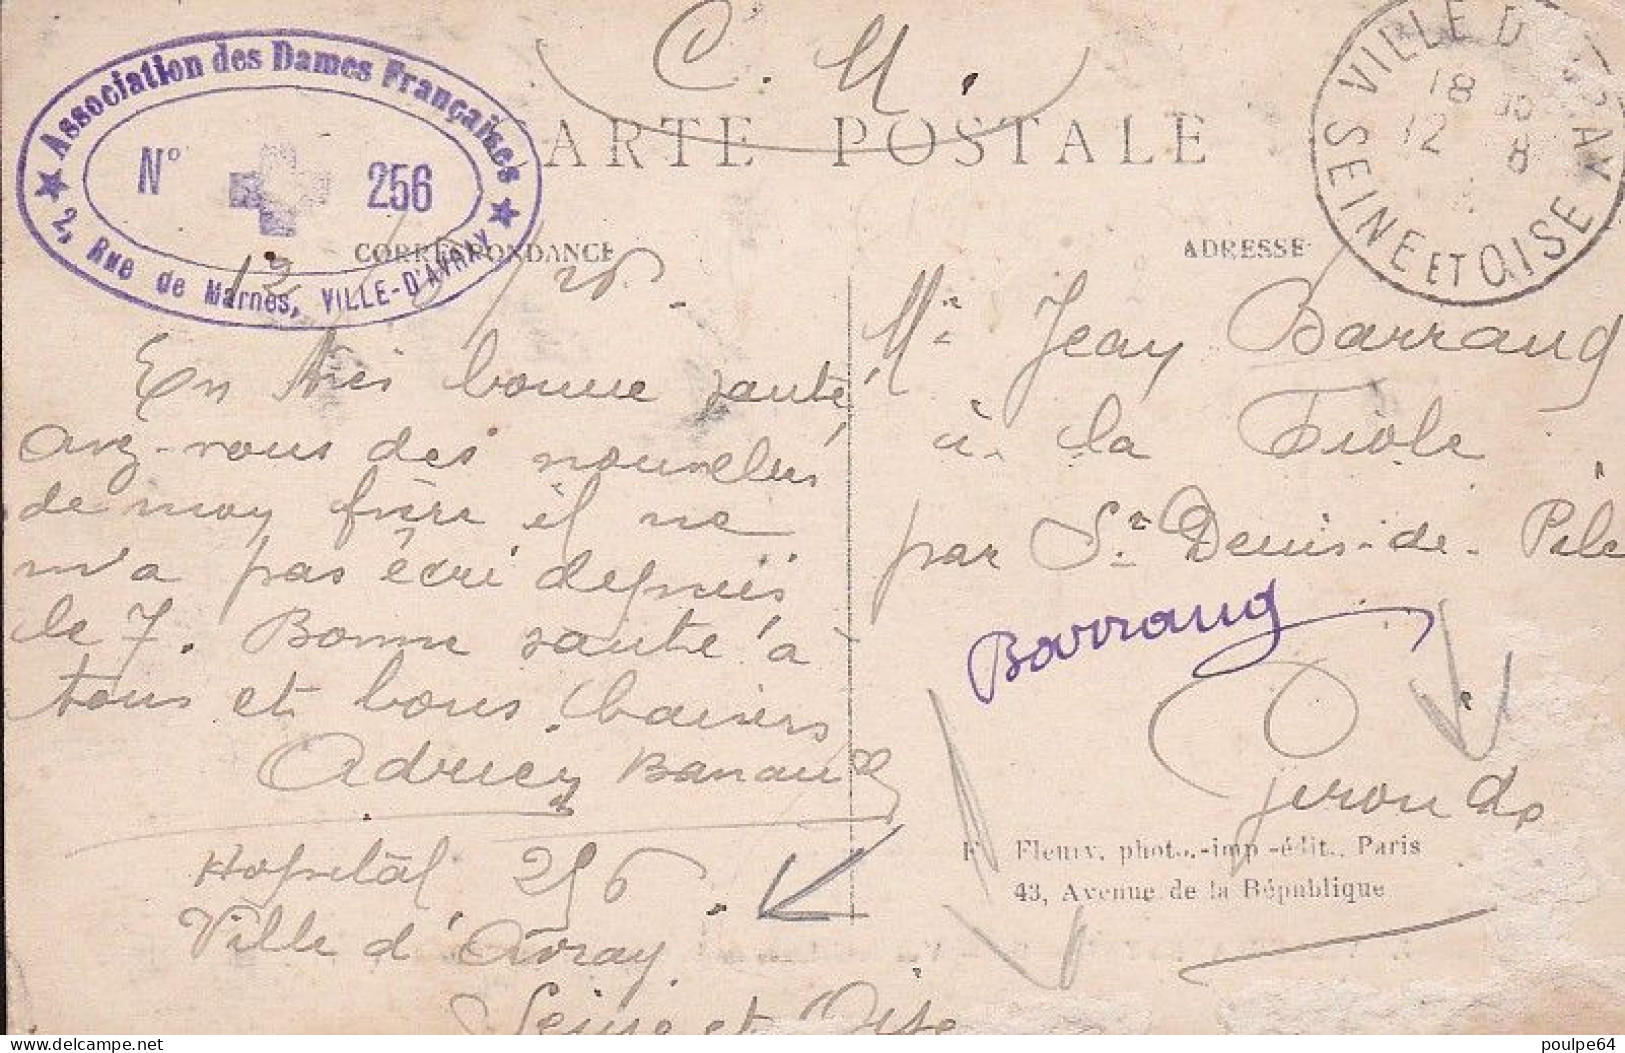 C. M.
Association des Dames Françaises
N° 256
2, Rue de Marnes, VILLE-D'AVRAY
CARTE POSTALE
VILLE D'AVRAY
18
12 8
SEINE ET OISE
CORRESPONDANCE
ADRESSE
En très bonne santé,
avez-vous des nouvelles
de moy frère il ne
m'a pas écri depuis
le 7. Bonne santé à
tous et bons baisers
Banaud
Hopital 256
Ville d'Avray
Seine et Oise
Mr Jean Barraud
à la Fiole
par St Denis-de-Pile
Barraud
Gironde
F. Fleury, phot.-imp.-édit., Paris
43, Avenue de la République
poulpe64
delcampe.net